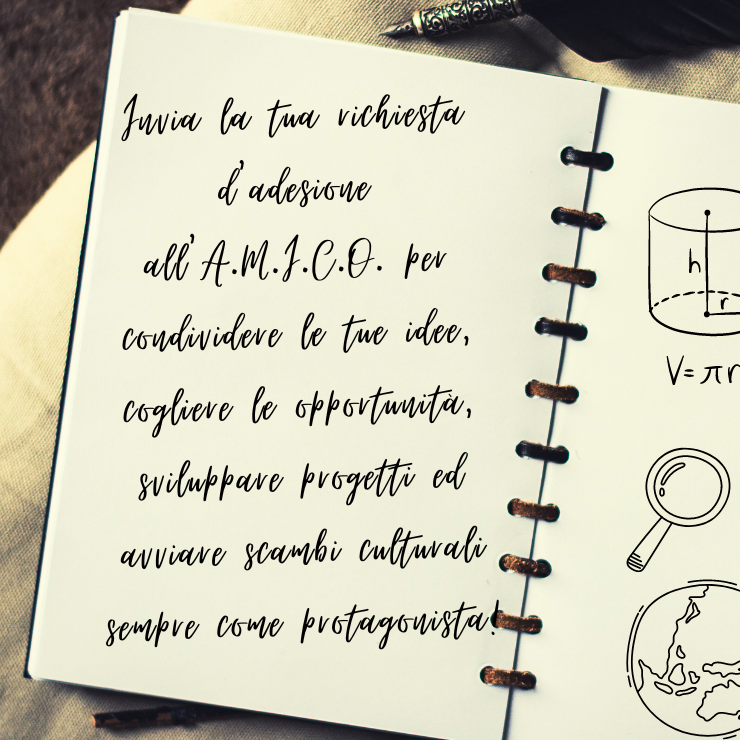 Invia la tua richiesta
d'adesione
all'A.M.I.C.O. per
condividere le tue idee,
cogliere le opportunità,
sviluppare progetti ed
avviare scambi culturali
sempre come protagonista!
h
r
V=πr